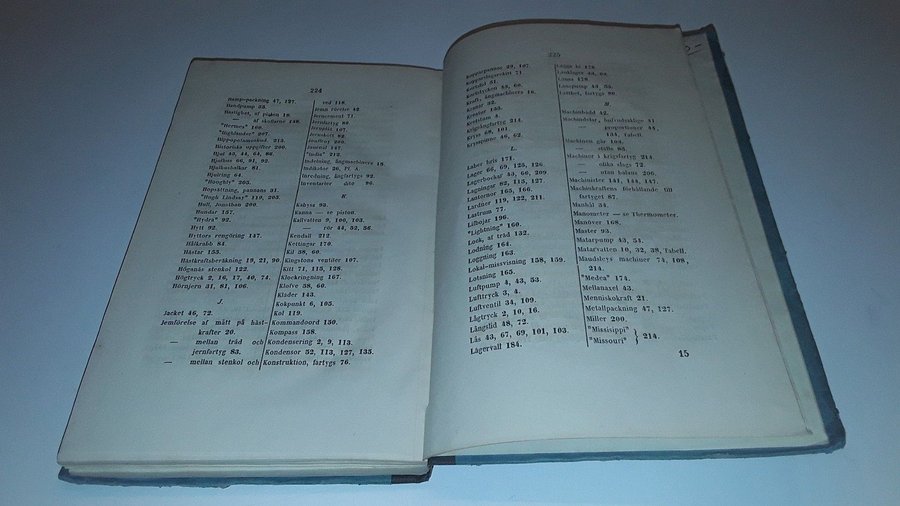 224
Hamp-packning 47, 127.
Handpump 53.
Hastighet, af piston 18.
— af skoflarne 158.
"Hermes" 160.
"Highlander" 207.
Hippopotamushud. 213.
Historiska uppgifter 200.
Hjul 43, 44, 64, 86.
Hjulhus 66, 91, 92.
Hjulhusbalkar 81.
Hjulring 64.
"Hooghly" 205.
Hopsättning, pannans 31.
"Hugh Lindsay" 110, 205.
Hull, Jonathan 200.
Hundar 157.
"Hydra" 92.
Hytt 92.
Hyttors rengöring 147.
Hålkrabb 84.
Hästar 155.
Hästkraftsberäkning 19, 21, 90.
Höganäs stenkol 122.
Högtryck 2, 16, 17, 40, 74.
Hörnjern 31, 81, 106.
J.
Jacket 46, 72.
Jemförelse af mått på häst-
krafter 20.
— mellan träd och
jernfartyg 83.
— mellan stenkol och
ved 118.
Jemn rörelse 42.
Jerncement 71.
Jernfartyg 80.
Jernplåt 107.
Jernskott 82.
Jouffroy 200.
Journal 147.
"India" 212.
Indelning, ångmachiners 18.
Indikator 26, Pl. A.
Inredning, ångfartygs 92.
Inventarier dito 96.
K.
Kabyss 93.
Kanna — se piston.
Kallvatten 9, 100, 103.
— rör 44, 52, 56.
Kendall 212.
Kettingar 170.
Kil 58, 60.
Kingstons ventiler 107.
Kitt 71, 115, 128.
Klockringning 167.
Klofve 58, 60.
Kläder 143.
Kokpunkt 6, 105.
Kol 119.
Kommandoord 150.
Kompass 158.
Kondensering 2, 9, 113.
Kondensor 52, 113, 127, 135.
Konstruktion, fartygs 76.
225
Kopparpannor 29, 107.
Korrid 51.
Kraft, ångmachiners 16.
Krigsfartyg 214.
Kryss 68, 101.
Krysspinne 46, 62.
L.
Laber bris 171.
Lager 66, 69, 125, 126.
Lagerbockar 43, 66, 209
Lagningar 82, 115, 127.
Lanternor 165, 166.
Lardner 119, 122, 211.
Lastrum 77.
Lifbojar 196.
"Lightning" 160.
Lock, af träd 132.
Lodning 164.
Loggning 163.
Lokal-missvisning 158, 159.
Lotsning 165.
Luftpump 4, 43, 53.
Lufttryck 3, 4.
Luftventil 34, 109.
Lågtryck 2, 10, 16.
Långslid 48, 72.
Lås 43, 67, 69, 101, 103.
Lägervall 184.
Länspump 54, 55.
M.
Machinbädd 42.
Machindelar, hufvudsakliga 41
— proportioner 44,
134, Tabell.
Machinen går 103.
— ställs 83.
Machiner i krigsfartyg 214.
— olika slags 72
— utan balans 206.
Machinister 141, 144, 147.
Machinkraftens förhållande till
fartyget 87.
Manhål 34.
Manometer — se Thermometer.
Manöver 168.
Master 93.
Matarpump 43, 54.
Matarvatten 10, 32, 38, Tabell.
Maudslays machiner 74, 108,
214.
"Medea" 174.
Mellanaxel 43.
Menniskokraft 21.
Metallpackning 47, 127.
Miller 200.
"Missisippi"
"Missouri" } 214.
15